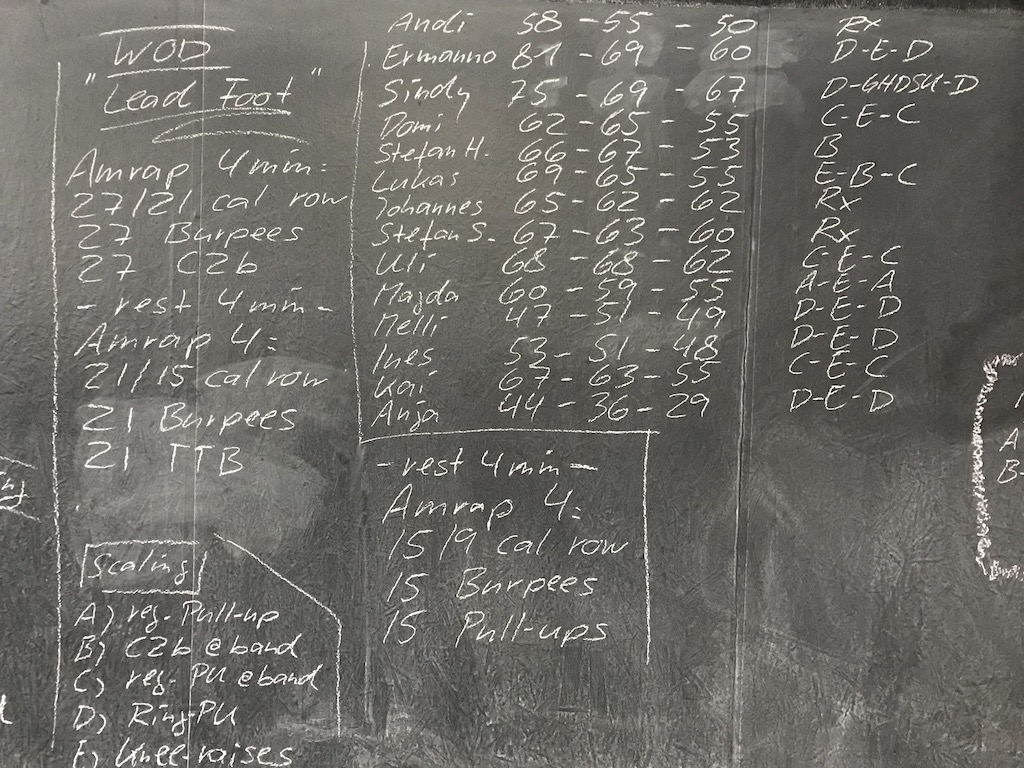 WOD
"Lead Foot"
Amrap 4min:
27/21 cal row
27 Burpees
27 C2b
- rest 4min -
Amrap 4:
21/15 cal row
21 Burpees
21 TTB
Scaling
A) reg. Pull-up
B) C2b @ band
C) reg. PU @ band
D) Ring-PU
E) Knee-raises
Andi 58 - 55 - 50 Rx
Ermanno 81 - 69 - 60 D-E-D
Sindy 75 - 69 - 67 D-GHDSU-D
Domi 62 - 65 - 55 C-E-C
Stefan H. 66 - 67 - 53 B
Lukas 69 - 65 - 55 E-B-C
Johannes 65 - 62 - 62 Rx
Stefan S. 67 - 63 - 60 Rx
Uli 68 - 68 - 62 C-E-C
Majda 60 - 59 - 55 A-E-A
Melli 47 - 51 - 49 D-E-D
Ines 53 - 51 - 48 D-E-D
Kai 67 - 63 - 55 C-E-C
Anja 44 - 36 - 29 D-E-D
- rest 4min -
Amrap 4:
15/9 cal row
15 Burpees
15 Pull-ups
A
B